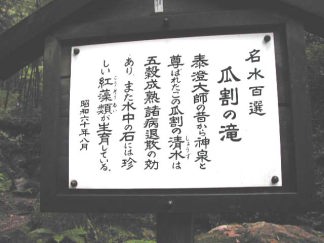 名水百選
瓜割の滝
泰澄大師の昔から神泉と
尊ばれたこの瓜割の清水は
しょうず
五穀成熟諸病退散の効
あり、また水中の石には珍
しい紅藻類が生育している。
こうそうるい
昭和六十年八月